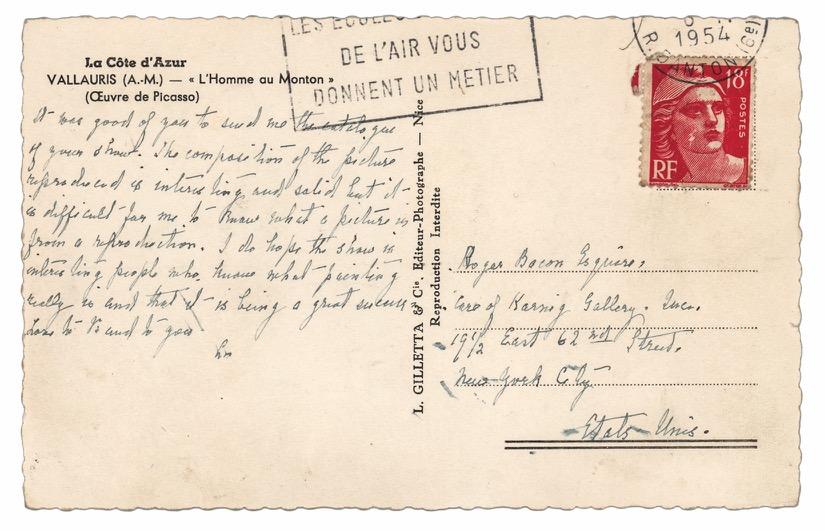 La Côte d'Azur
VALLAURIS (A.-M.) — « L'Homme au Monton »
(Œuvre de Picasso)
LES ECOLES
DE L'AIR VOUS
DONNENT UN METIER
1954
R. D'ANTON
18F
POSTES
RF
It was good of you to send me the catalogue
of your show. The composition of the picture
reproduced is interesting and solid but it
is difficult for me to know what a picture is
from a reproduction. I do hope the show is
interesting people who know what painting
really is and that it is being a great success
Love to and to you
L. GILLETTA & Cie, Editeur-Photographe — Nice
Reproduction Interdite
Roger Bacon Esquire,
Care of Karnig Gallery. Inc.
19½ East 62nd Street.
New York City
Etats Unis.